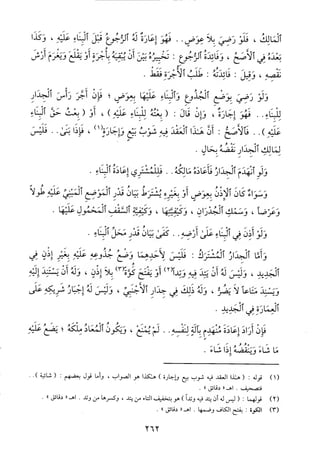 المالك ، فلو رضي بلا عوض .. فهو إعارة له الرجوع قبل البناء عليه ، وكذا
بعده في الأصح ، وفائدة الرجوع : تخييره بين أن يبقيه بأجرة أو يقلع ويغرم أرش
نقصه ، وقيل : فائدته : طلب الأجرة فقط .
ولو رضي بوضع الجذوع والبناء عليها بعوض ؛ فإن أجر رأس الجدار
للبناء .. فهو إجارة ، وإن قال : ( بعته للبناء عليه ) ، أو ( بعت حق البناء
عليه ) .. فالأصح : أن هذا العقد فيه شوب بيع وإجارة(١) ، فإذا بنى .. فليس
لمالك الجدار نقضه بحال .
ولو انهدم الجدار فأعاده مالكه .. فللمشتري إعادة البناء .
وسواء كان الإذن بعوض أو بغيره يشترط بيان قدر الموضع المبني عليه طولاً
وعرضاً ، وسمك الجدران ، وكيفيتها ، وكيفية السقف المحمول عليها .
ولو أذن في البناء على أرضه .. كفى بيان قدر محل البناء .
وأما الجدار المشترك : فليس لأحدهما وضع جذوعه عليه بغير إذن في
الجديد ، وليس له أن يتد فيه وتداً(٢) أو يفتح كوة(٣) بلا إذن ، وله أن يستند إليه
ويسند متاعاً لا يضر ، وله ذلك في جدار الأجنبي ، وليس له إجبار شريكه على
العمارة في الجديد .
فإن أراد إعادة منهدم بآلة لنفسه .. لم يمنع ، ويكون المعاد ملكه ؛ يضع عليه
ما شاء وينقضه إذا شاء .
(١) قوله : ( هذا العقد فيه شوب بيع وإجارة ) هكذا هو الصواب ، وأما قول بعضهم : ( شائبة ) ..
فتصحيف . اهـ « دقائق » .
(٢) قولهما : ( ليس له أن يتد فيه وتداً ) هو بتخفيف التاء من يتد ، وكسرها من وتد . اهـ « دقائق » .
(٣) الكوة : بفتح الكاف وضمها . اهـ « دقائق » .
٢٦٢